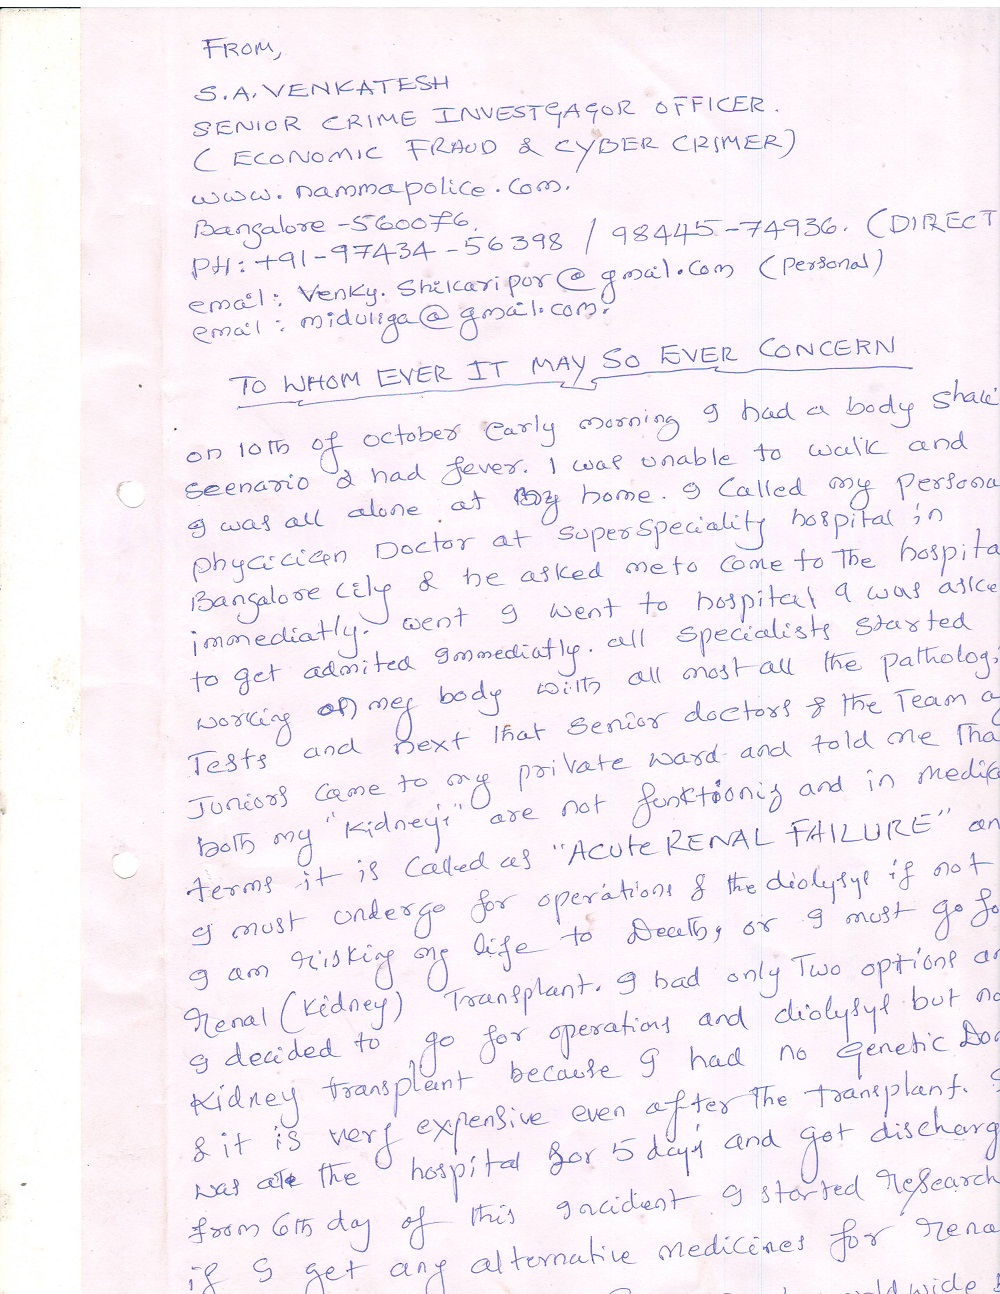 FROM,
S.A. VENKATESH
SENIOR CRIME INVESTGAGOR OFFICER.
( ECONOMIC FRAUD & CYBER CRIMER)
www.nammapolice.com.
Bangalore -560076.
PH: +91-97434-56398 / 98445-74936. (DIRECT
email: Venky.Shikaripor@gmail.com (Personal)
email: miduliga@gmail.com.
TO WHOM EVER IT MAY SO EVER CONCERN
on 10th of october early morning I had a body shake
seenario & had fever. I was unable to walk and
I was all alone at my home. I Called my Persona
phycician Doctor at superspeciality hospital in
Bangalore city & he asked me to come to the hospita
immediatly. went I went to hospital I was aske
to get admited Immediatly. all specialists started
working on my body with all most all the patholog
Tests and next that senior doctors & the Team a
Juniors came to my private ward and told me Tha
both my "Kidneyi" are not funktionig and in medica
terms it is called as "ACUTE RENAL FAILURE" an
I must undergo for operations & the diolysys if not
I am risking my life to Death, or I must go fo
Renal (Kidney) Transplant. I had only Two options an
I decided to go for operations and diolysys but no
Kidney transplant because I had no genetic Do
& it is very expensive even after The transplant. I
was at the hospital for 5 days and got discharg
from 6th day of this Incident I started Research
if I get any alternative medicines for rena
wide